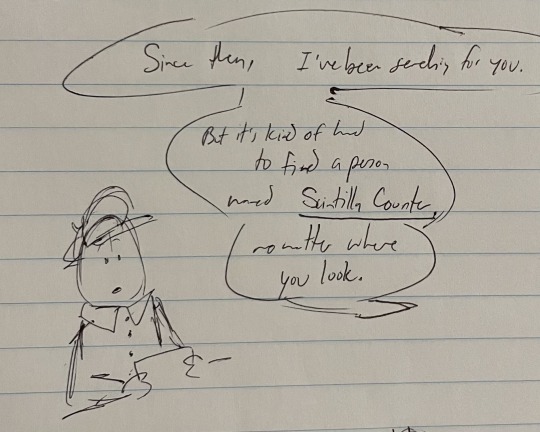 Since then, I've been searching for you.
But it's kind of hard
to find a person
named Scintilla Counter,
no matter where
you look.